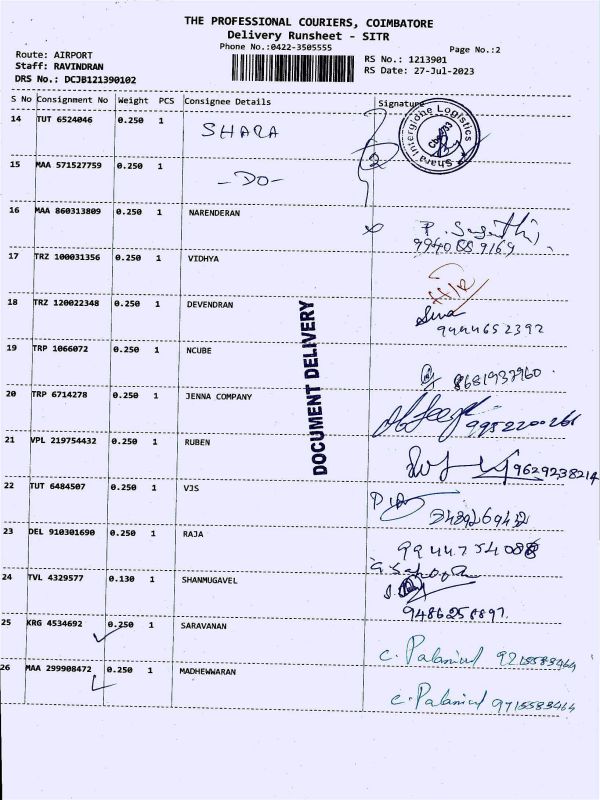 THE PROFESSIONAL COURIERS, COIMBATORE
Delivery Runsheet - SITR
Phone No.:0422-3505555
Page No.:2
Route: AIRPORT
Staff: RAVINDRAN
DRS No.: DCJB121390102
RS No.: 1213901
RS Date: 27-Jul-2023
S No Consignment No Weight PCS Consignee Details Signature
14 TUT 6524046 0.250 1 SHARA
Shara Interglobe Logistics
15 MAA 571527759 0.250 1 -DO-
16 MAA 860313809 0.250 1 NARENDERAN
9940889169
17 TRZ 100031356 0.250 1 VIDHYA
18 TRZ 120022348 0.250 1 DEVENDRAN
9444652392
19 TRP 1066072 0.250 1 NCUBE 8681937960
20 TRP 6714278 0.250 1 JENNA COMPANY 9952200266
21 VPL 219754432 0.250 1 RUBEN 9629238214
22 TUT 6484507 0.250 1 VJS
23 DEL 910301690 0.250 1 RAJA
9944754088
24 TVL 4329577 0.130 1 SHANMUGAVEL
9486258897
25 KRG 4534692 0.250 1 SARAVANAN
26 MAA 299908472 0.250 1 MADHEWWARAN
9715583464
DOCUMENT DELIVERY